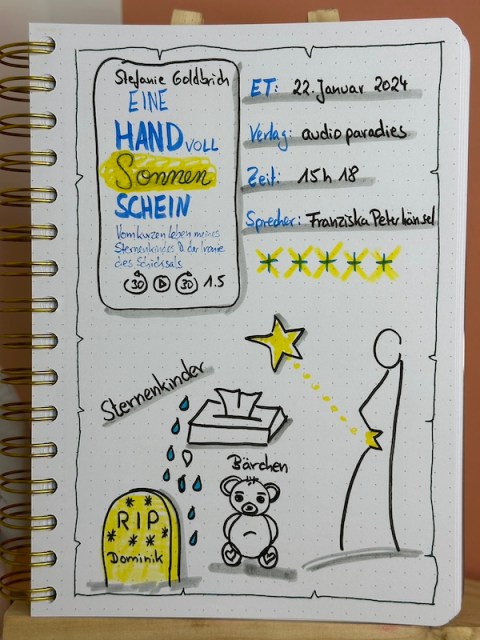 Stefanie Goldbrich
EINE
HAND VOLL
Sonnen
SCHEIN
Vom kurzen Leben meines
Sternenkindes & der Ironie
des Schicksals
30 30 1.5
ET: 22. Januar 2024
Verlag: audioparadies
Zeit: 15h 18
Sprecher: Franziska Peterhänsel
Sternenkinder
Bärchen
RIP
Dominik